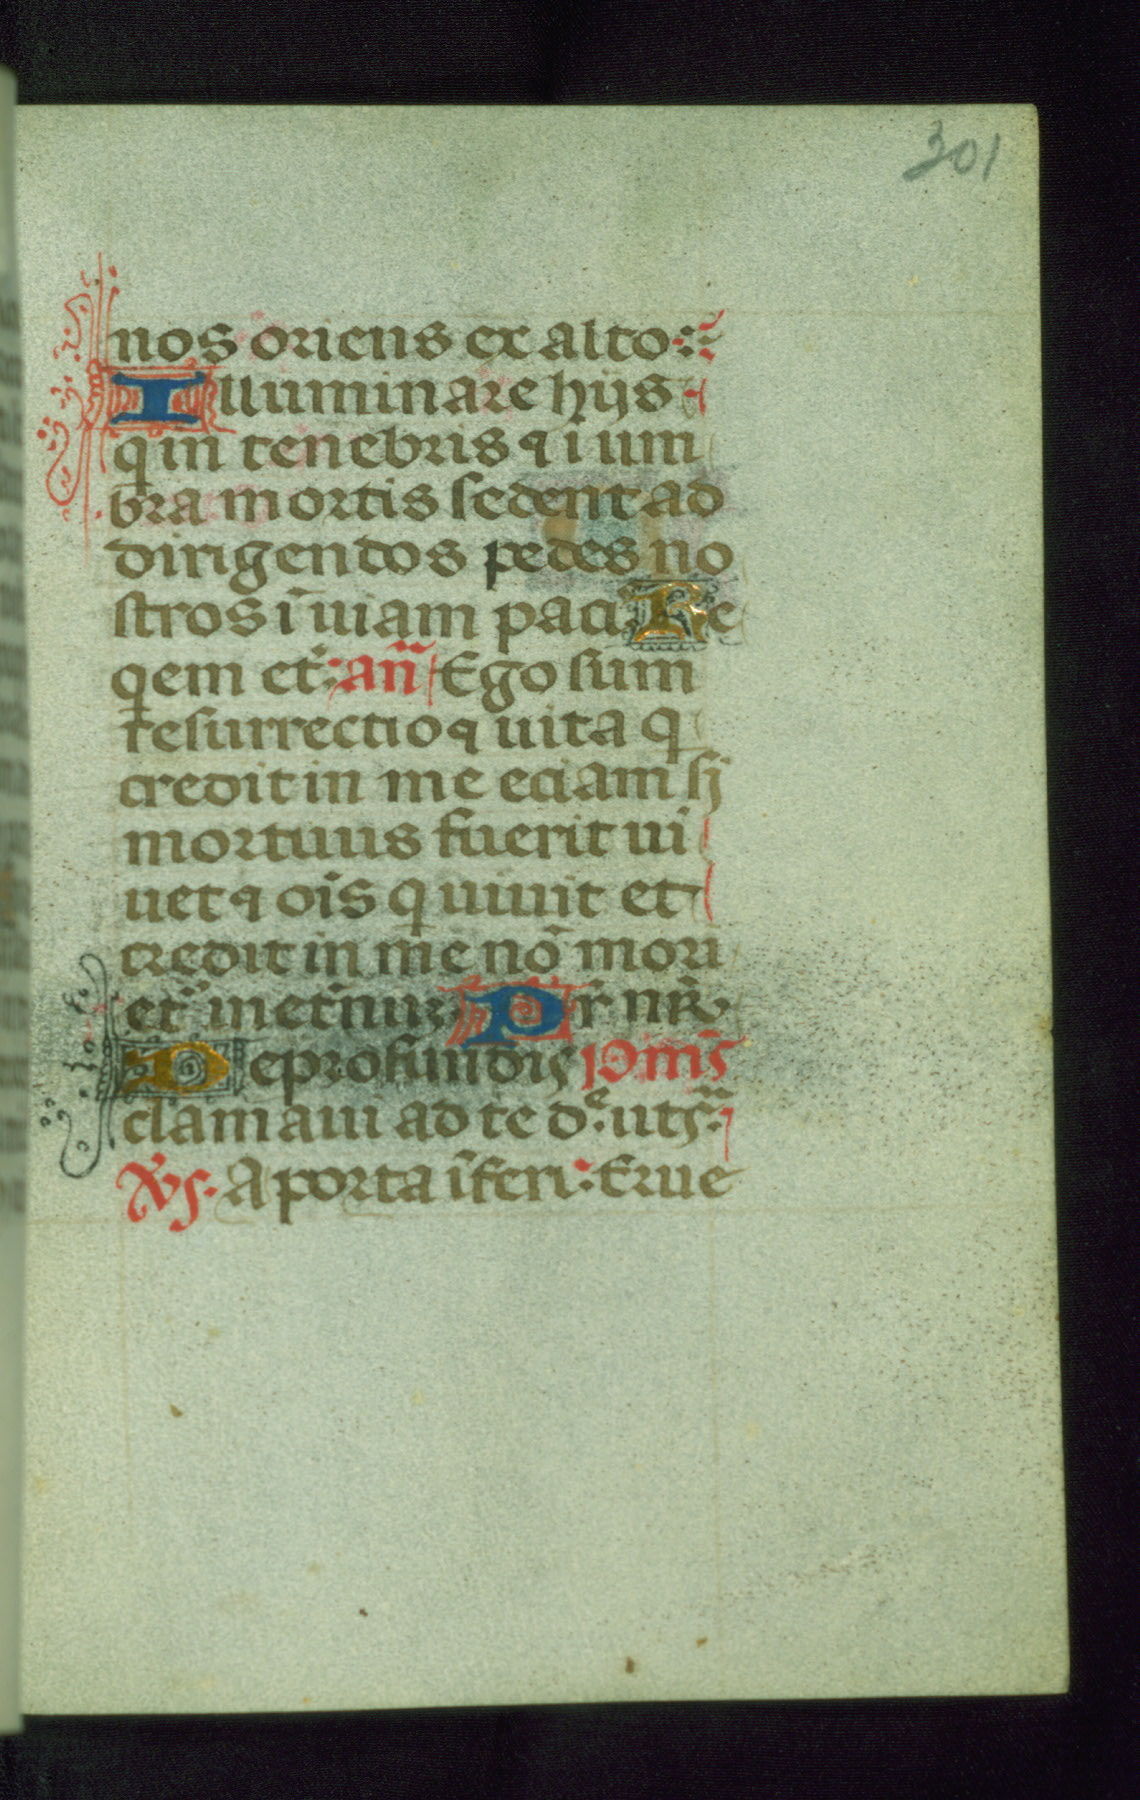 301
nos oriens ex alto:
Illuminare hijs
q in tenebris ⁊ i um
bra mortis sedent ad
dirigendos pedes no
stros ī uiam paci Re
qem et̄: an̄ Ego sum
resurrectio ⁊ uita q
credit in me eciam si
mortuus fuerit ui
uet ⁊ oīs q uiuit et
credit in me nō mori
et᷑ in et̄nuȝ Pr̄ nr̄
De profundis pᷤm̄s
clamaui ad te dᵉ: uts̄:
V̄s. A porta īferi: Erue